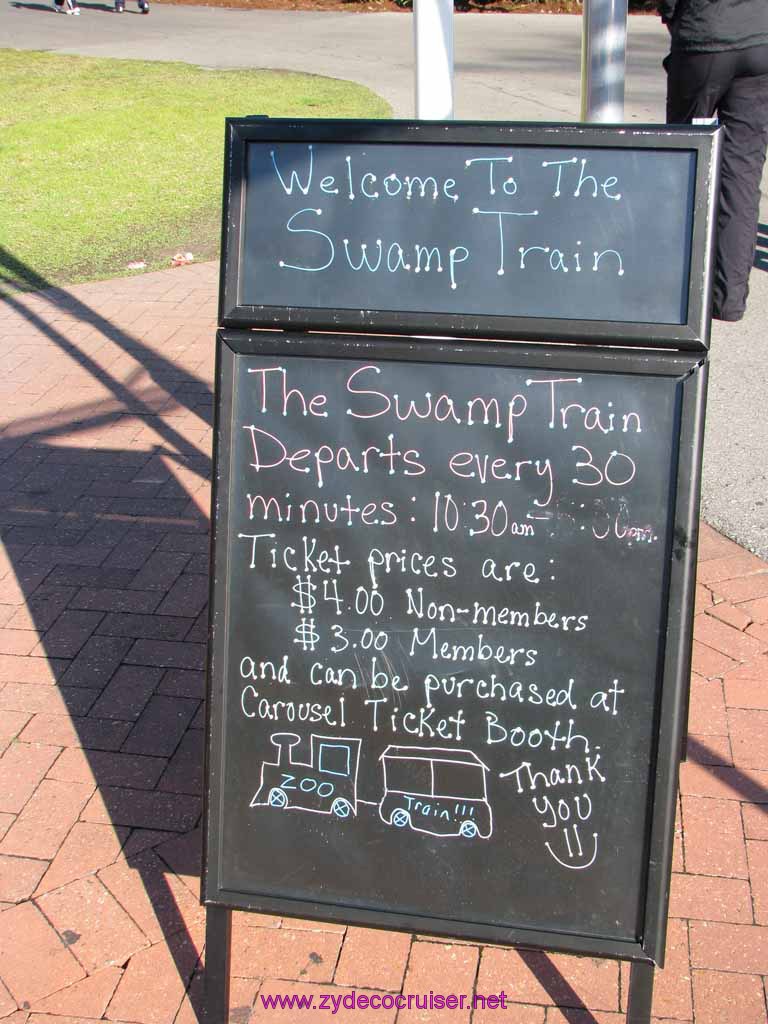 Welcome To The
Swamp Train
The Swamp Train
Departs every 30
minutes: 10:30am-
Ticket prices are:
$4.00 Non-members
$3.00 Members
and can be purchased at
Carousel Ticket Booth.
Thank
you
ZOO
Train!!!
www.zydecocruiser.net